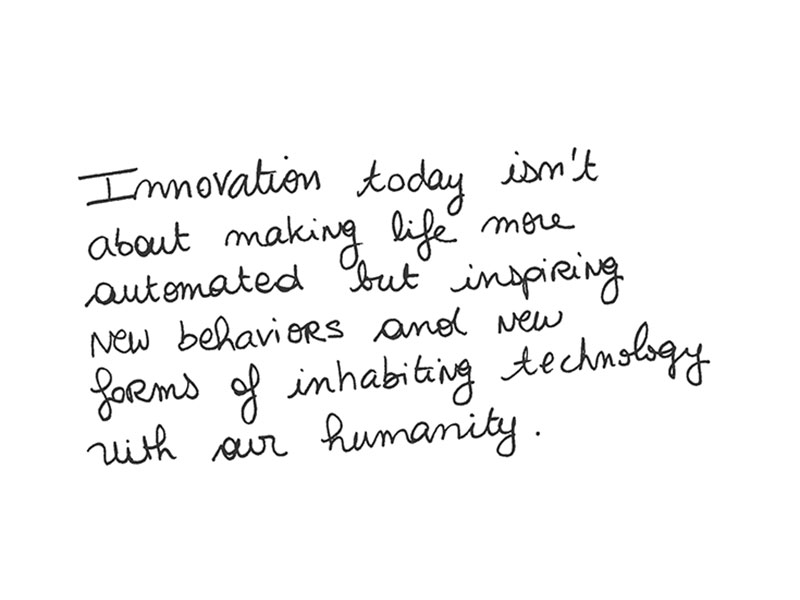 Innovation today isn't
about making life more
automated but inspiring
new behaviors and new
forms of inhabiting technology
with our humanity.